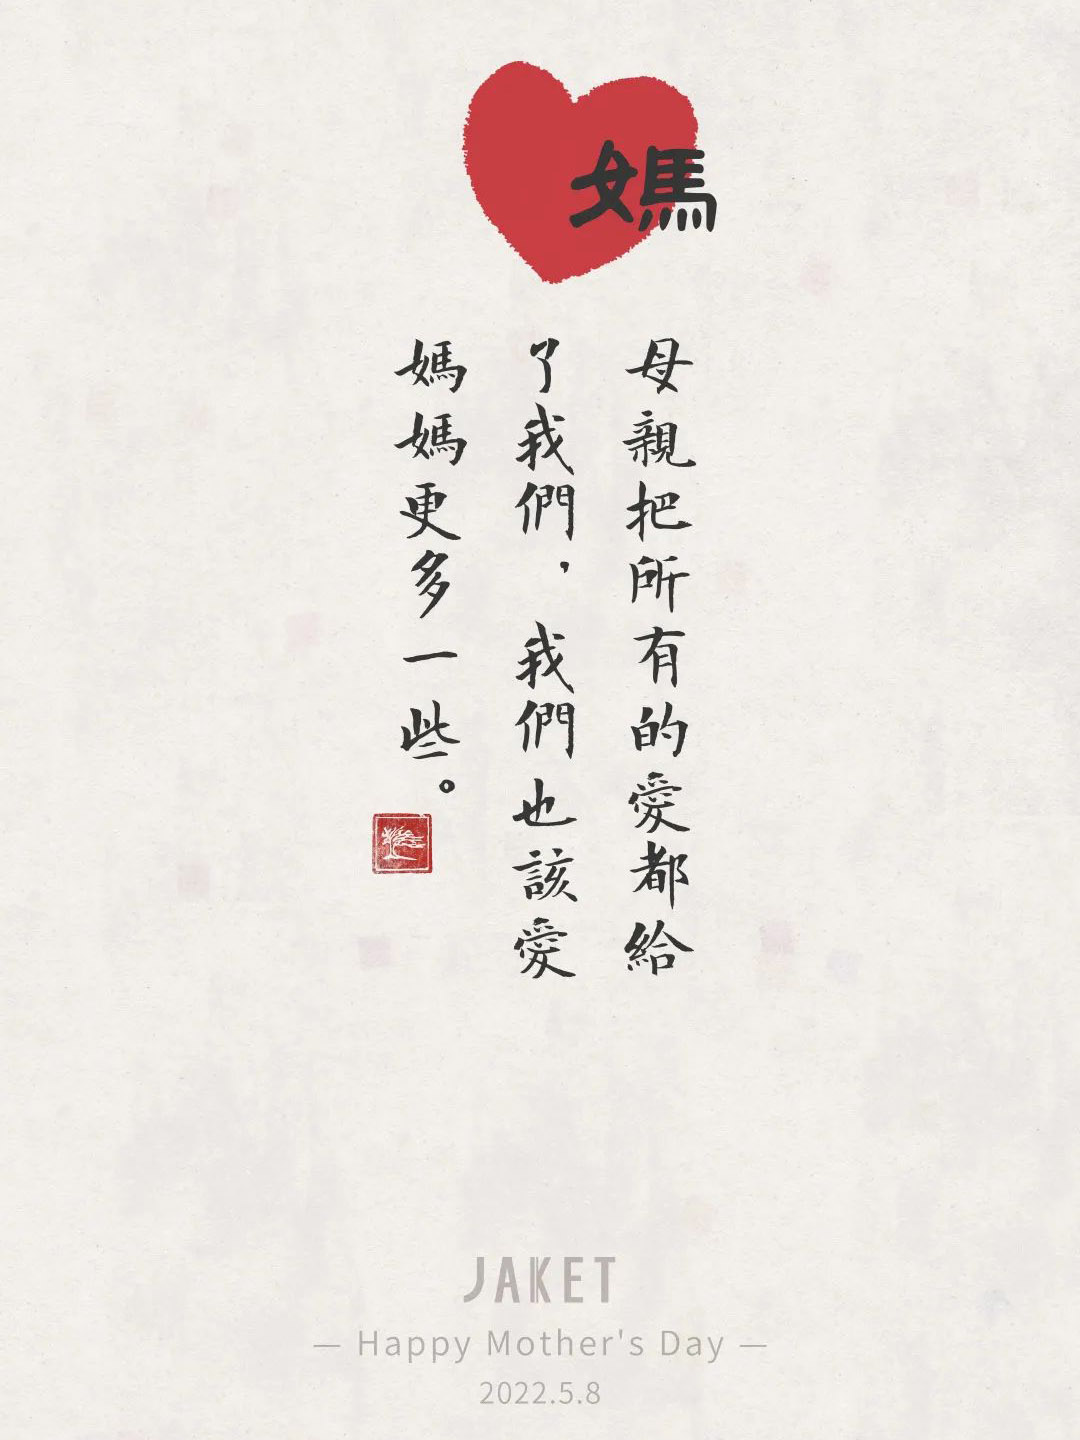 媽
母親把所有的愛都給
了我們，我們也該愛
媽媽更多一些。
JAKET
— Happy Mother's Day —
2022.5.8